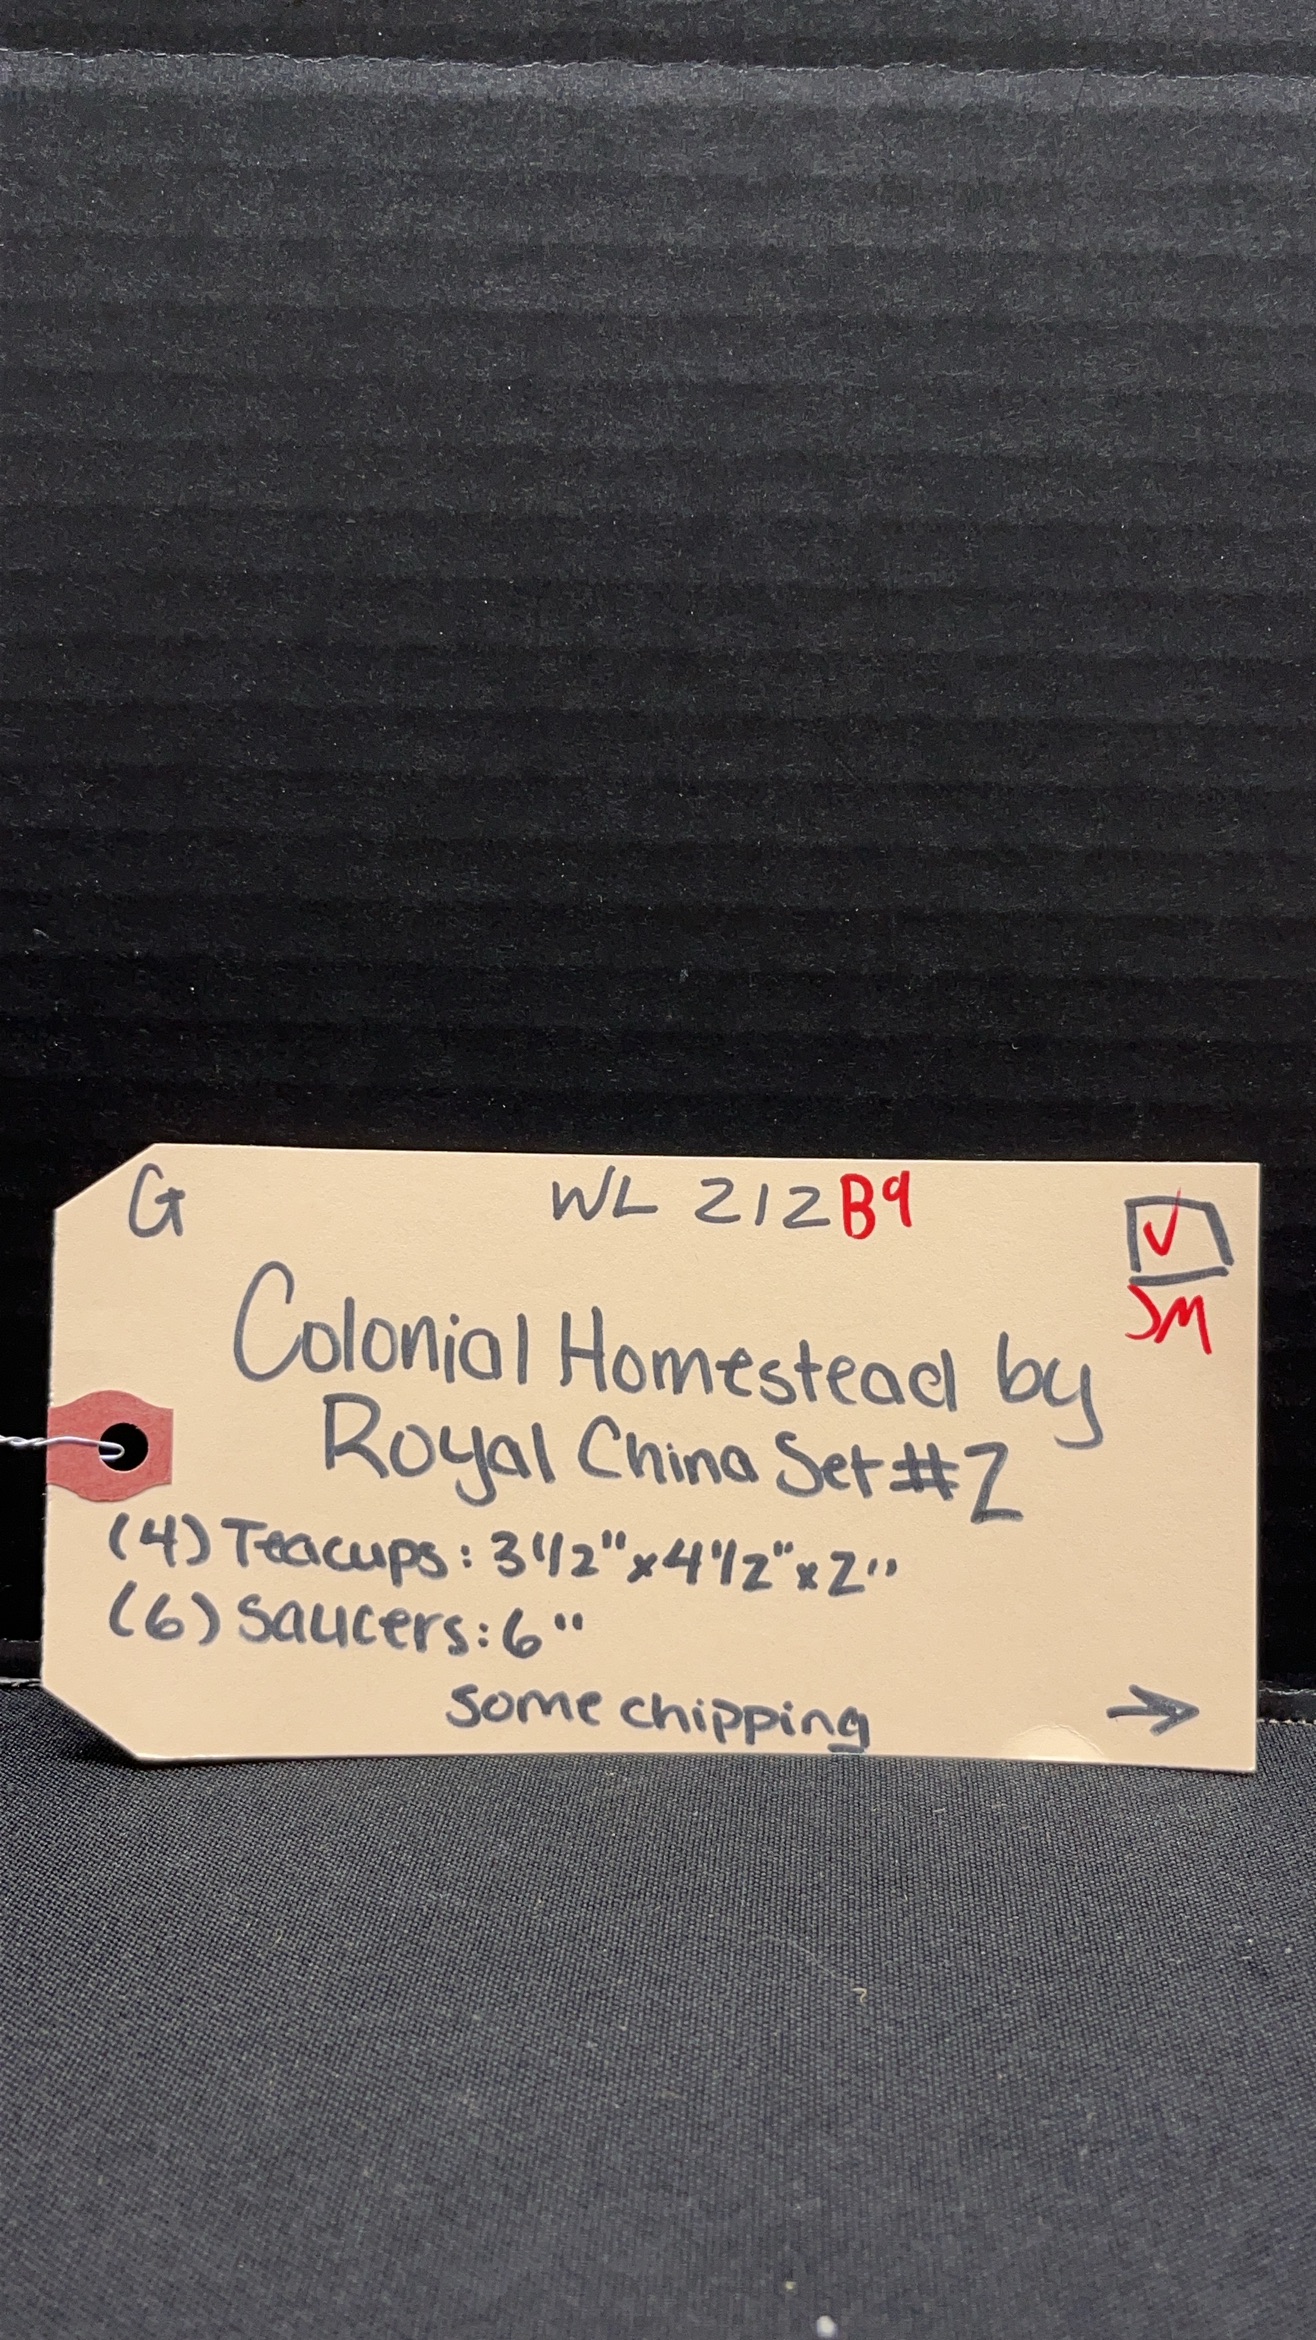 G WL 212B9
✓
SM
Colonial Homestead by
Royal China Set #2
(4) Teacups: 3 1/2" x 4 1/2" x 2"
(6) Saucers: 6"
some chipping →